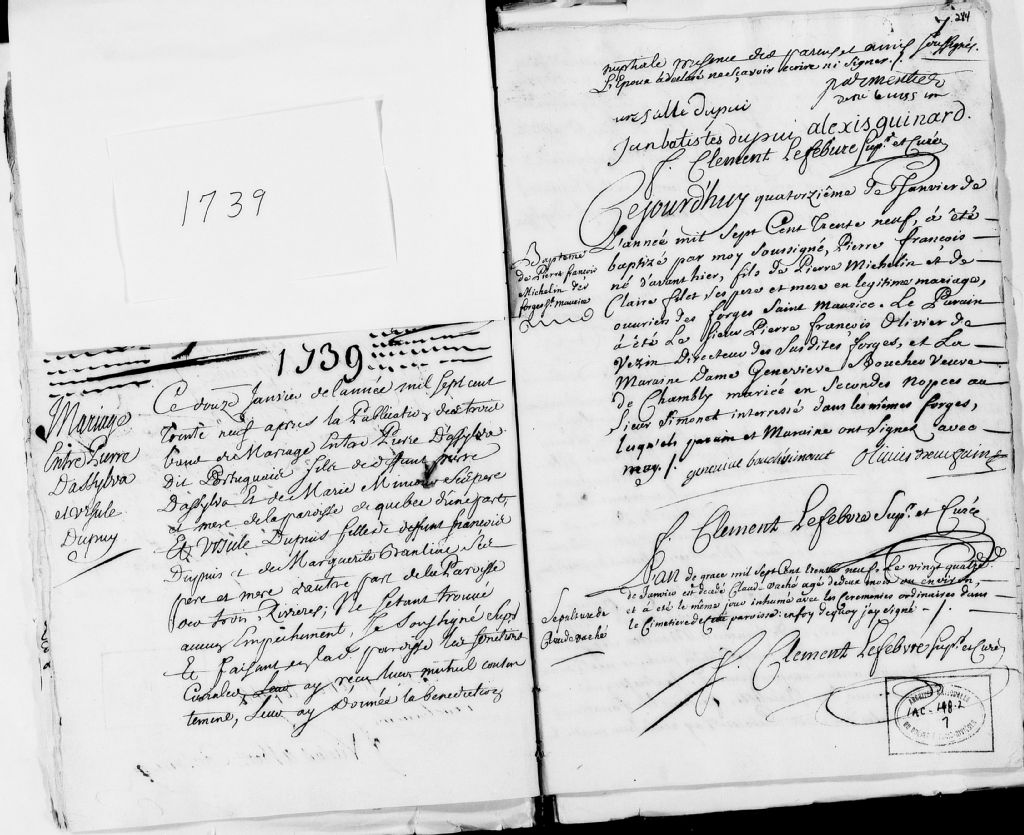 1739
1739
Mariage
Entre Pierre
Dassylva
et ursule
Dupuy
Ce douze Janvier de l'année mil sept cent
trente neuf apres la Publication des trois
bans de Mariage Entre Pierre Dassylva
dit Portuguais fils de deffunt pierre
Dassylva Et de Marie Ses pere
et mere de la paroisse de quebec d'une part,
Et Ursule Dupuis fille de deffunt françois
Dupuis et de Marguerite Ses
pere et mere d'autre part de la Paroisse
des trois Rivieres; Ne s'etant trouvé
aucun Empechement, Je Soussigné
Et faisant en lad. paroisse les fonctions
Curiales, ay reçu leur mutuel consen
tement, Leur ay Donnée la benediction
7. 244
nuptiale presence des parens et amis soussignés.
L'Epoux a declaré ne sçavoir écrire ni signer. /.
parmentier
ursulle dupui
Junbatistes dupui alexis guinard.
f. Clement Lefebvre Sup.r et Curé
Baptême
de Pierre françois
Michelin des
forges St. maurice
Cejourd'huy quatorziême de Janvier de
L'année mil Sept Cent Trente neuf, à été
baptizé par moy Soussigné, Pierre françois
né d'avant hier, fils de Pierre Michelin et de
Claire filet Ses pere et mere en legitime mariage,
ouvriers des forges Saint Maurice. Le Parain
a été Le Sieur Pierre françois Olivier de
Vezin Directeur des Susdites forges, et La
Maraine Dame Genevieve Boucher Veuve
de Chambly mariée en Secondes Nopces au
Sieur Simonet interressé dans les mêmes forges,
lesquels parain et Maraine ont Signés avec
moy. /.
genevieve boucher simonet Olivier de vezain
f. Clement Lefebvre Sup.r et Curé
Sepulture de
Claude vaché
L'an de grace mil Sept Cent trente neuf. Le vingt quatre
de Janvier est decedé Claude vaché agé de deux mois ou environ,
et a été le même jour inhumé avec les Ceremonies ordinaires dans
le Cimetiere de Cette paroisse: en foy de quoy j'ay signé - /.
f. Clement Lefebvre Sup.r et Curé